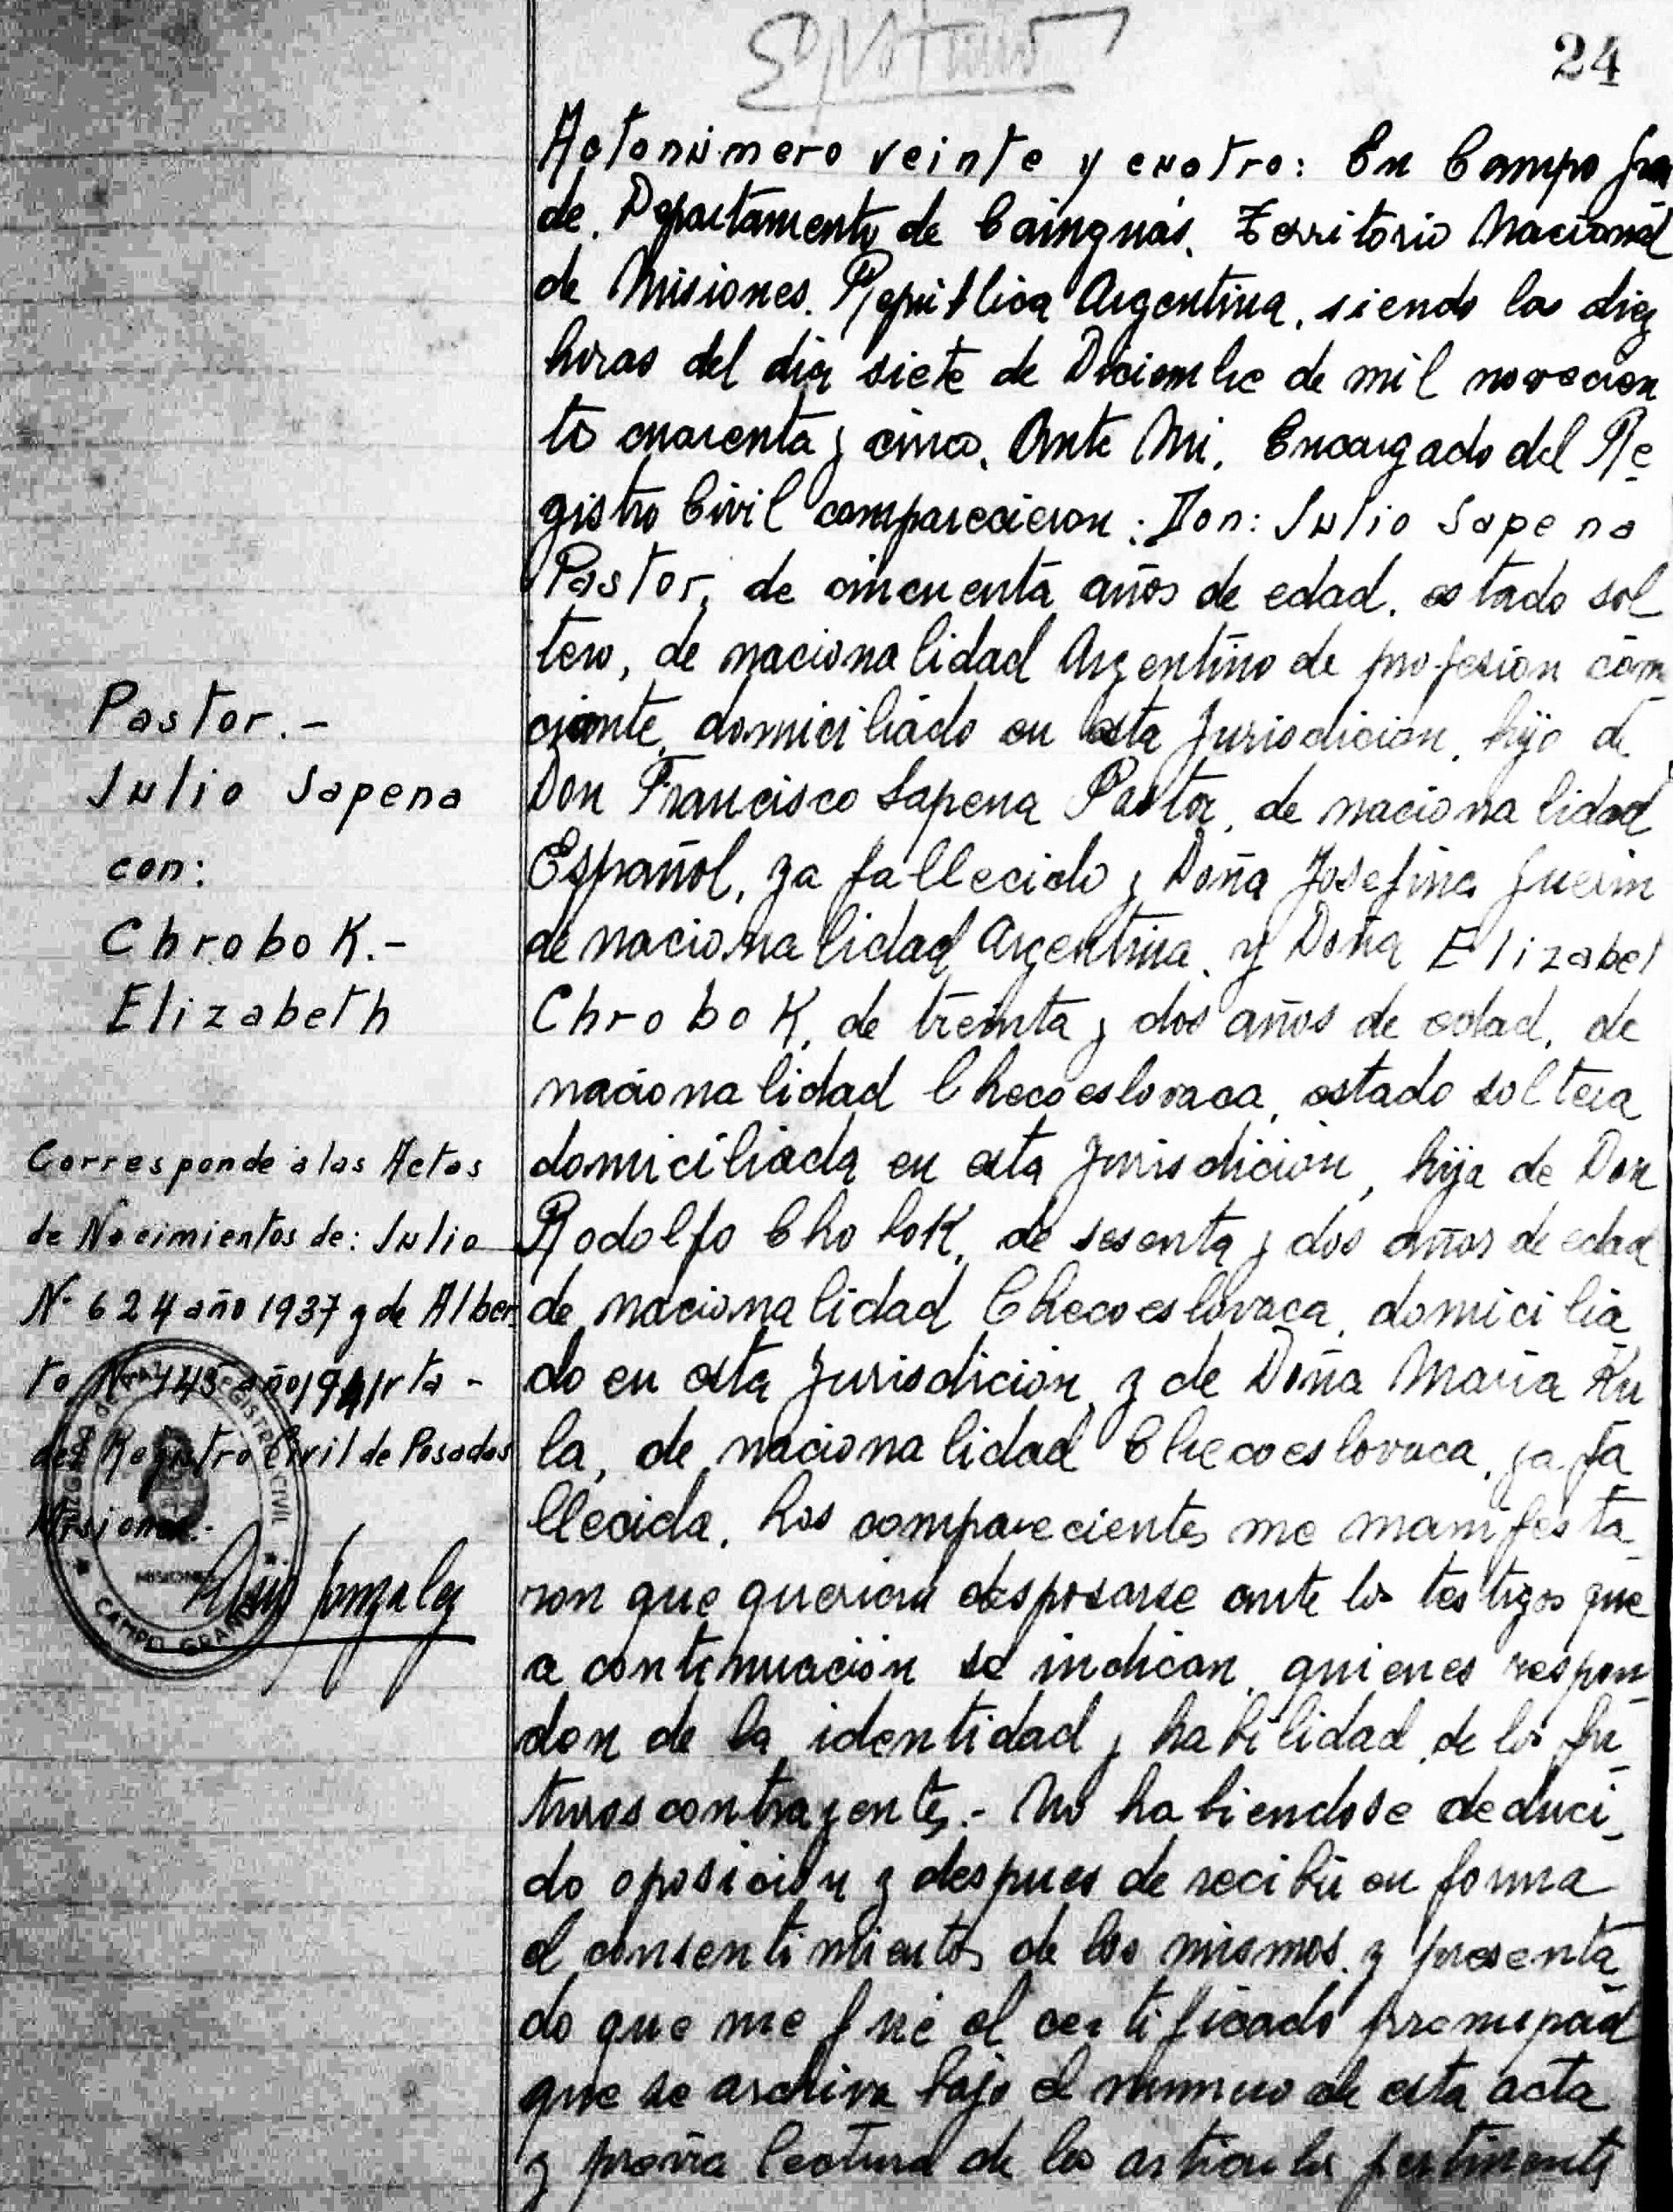 24
Acta número veinte y cuatro: En Campo Gran
de. Departamento de Cainguás. Territorio Nacional
de Misiones. República Argentina, siendo las diez
horas del dia siete de Diciembre de mil novecien
tos cuarenta y cinco. Ante Mi. Encargado del Re
gistro Civil comparecieron: Don: Julio Sapena
Pastor, de cincuenta años de edad. estado sol
tero, de nacionalidad Argentino de profesion com
ciante, domiciliado en esta Jurisdicion, hijo de
Don Francisco Sapena Pastor, de nacionalidad
Español, ya fallecido y Doña Josefina Guerin
de nacionalidad Argentina. y Doña Elizabet
Chrobok, de treinta y dos años de edad, de
nacionalidad Checoeslovaca, estado soltera
domiciliada en esta Jurisdicion, hija de Don
Rodolfo Chobok, de sesenta y dos años de edad
de nacionalidad Checoeslovaca, domicilia
do en esta Jurisdicion, y de Doña Maria Ku
la, de nacionalidad Checoeslovaca, ya fa
llecida. Los comparecientes me manifesta
ron que querian desposarse ante los testigos que
a continuación se indican, quienes respon
den de la identidad y habilidad de los fu
turos contrayentes.- No habiendose deduci
do oposición y despues de recibir en forma
el consentimiento de los mismos, y presenta
do que me fué el certificado prenupcial
que se archiva bajo el numero de esta acta
y previa lectura de los articulos pertinentes
Pastor.-
Julio Sapena
con:
Chrobok.-
Elizabeth
Corresponde a las Actas
de Nacimientos de: Julio
Nº 624 año 1937 y de Alber
to Nº 143 año 1941 rta-
del Registro Civil de Posadas
Misiones.-
Gonzalez
REGISTRO CIVIL
MISIONES
CAMPO GRANDE